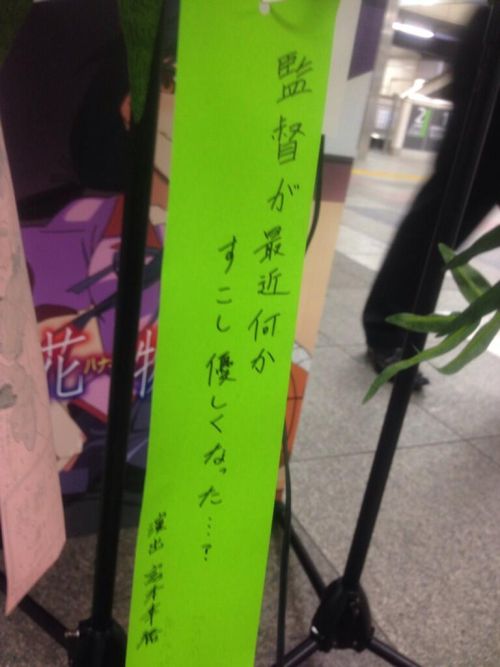 監督が最近何か
すこし優しくなった…?
演出
花
ハナ
物